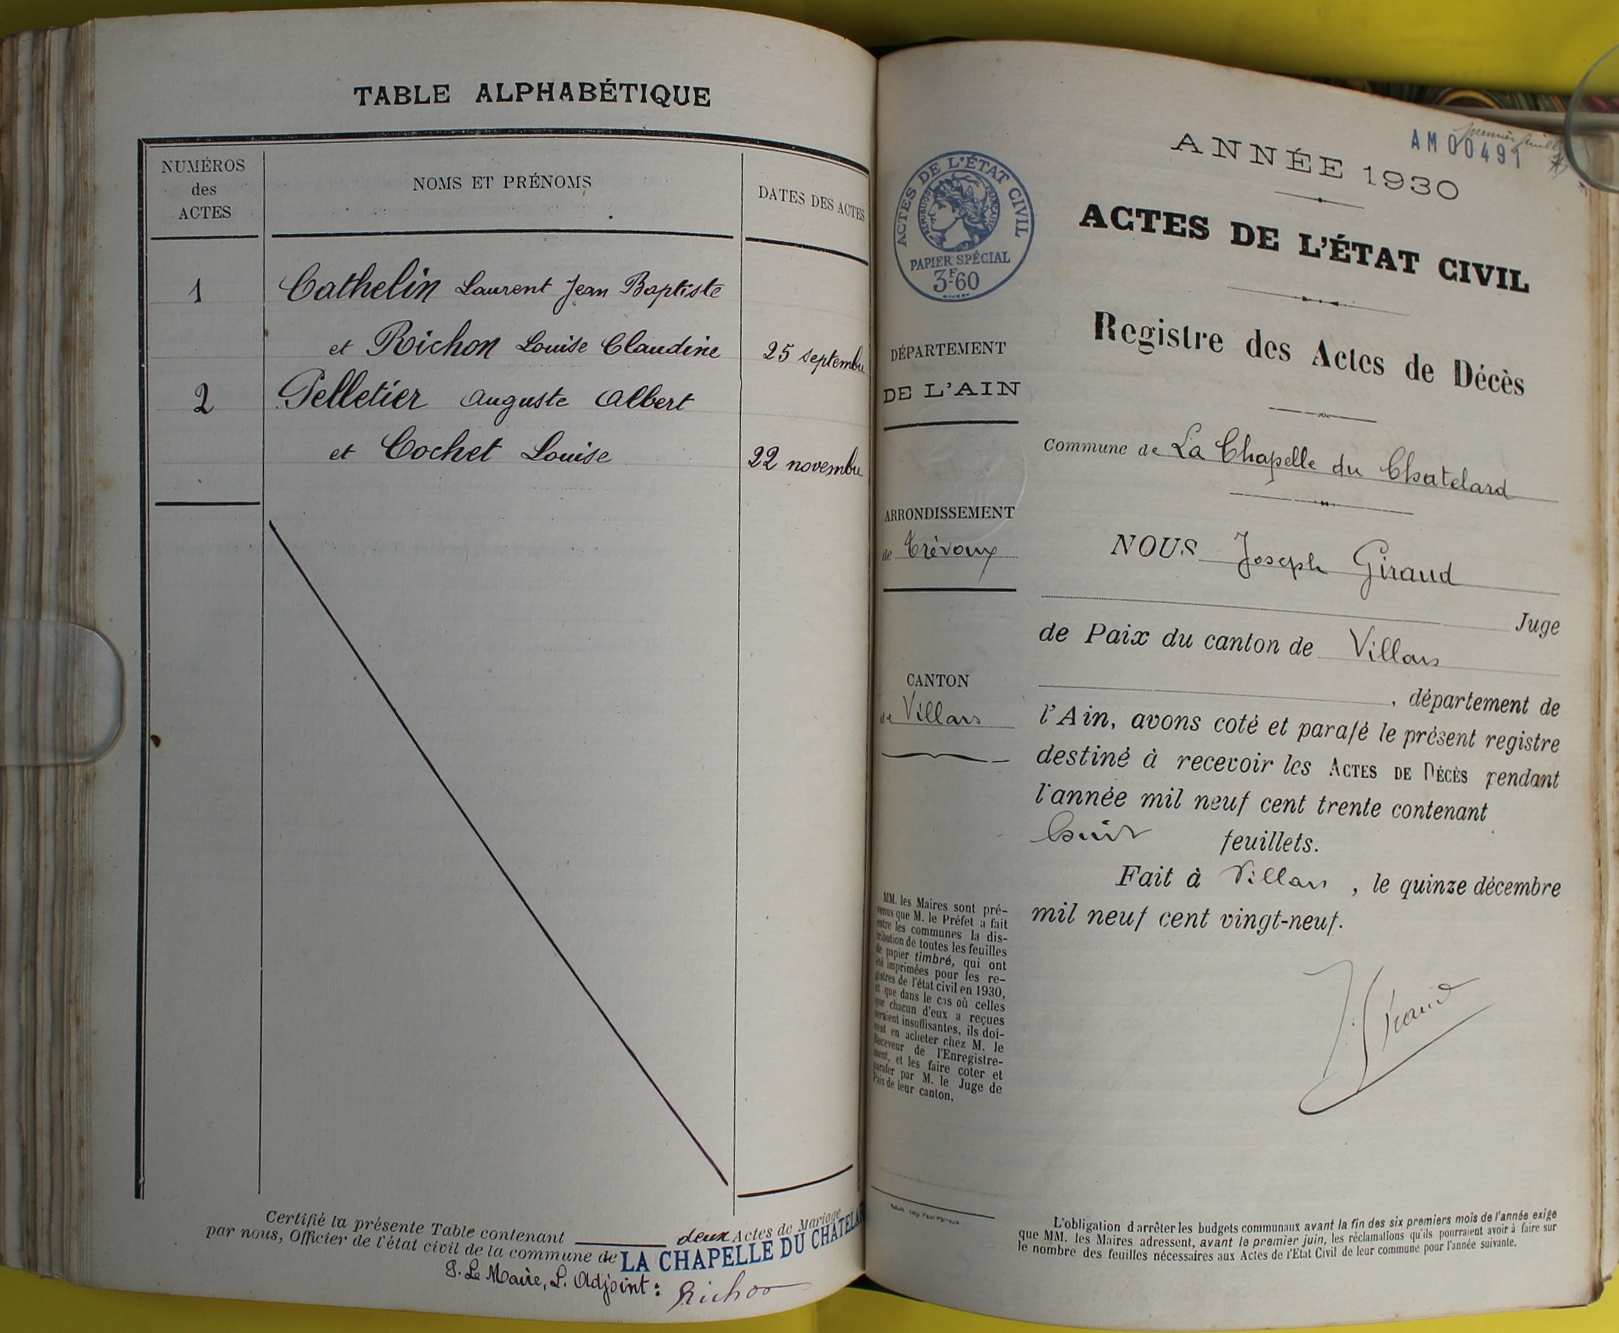 TABLE ALPHABÉTIQUE
NUMÉROS
des
ACTES
NOMS ET PRÉNOMS
DATES DES ACTES
1 Cathelin Laurent Jean Baptiste
et Richon Louise Claudine 25 septembre
2 Pelletier Auguste Albert
et Cochet Louise 22 novembre
Certifié la présente Table contenant deux Actes de Mariage
par nous, Officier de l'état civil de la commune de LA CHAPELLE DU CHATELARD
P. Le Maire, L. Adjoint :
Richon
AM00491
premier feuillet
ANNÉE 1930
ACTES DE L'ÉTAT CIVIL
Registre des Actes de Décès
Commune de La Chapelle du Chatelard
ACTES DE L'ÉTAT CIVIL
RÉPUBLIQUE FRANÇAISE
PAPIER SPÉCIAL
3F60
DÉPARTEMENT
DE L'AIN
ARRONDISSEMENT
de Trévoux
CANTON
de Villars
MM. les Maires sont pré-
venus que M. le Préfet a fait
entre les communes la dis-
tribution de toutes les feuilles
de papier timbré, qui ont
été imprimées pour les re-
gistres de l'état civil en 1930,
et que dans le cas où celles
que chacun d'eux a reçues
seraient insuffisantes, ils doi-
vent en acheter chez M. le
Receveur de l'Enregistre-
ment, et les faire coter et
parafer par M. le Juge de
Paix de leur canton.
NOUS Joseph Giraud
Juge
de Paix du canton de Villars
, département de
l'Ain, avons coté et parafé le présent registre
destiné à recevoir les ACTES DE DÉCÈS pendant
l'année mil neuf cent trente contenant
huit feuillets.
Fait à Villars, le quinze décembre
mil neuf cent vingt-neuf.
J. Giraud
L'obligation d'arrêter les budgets communaux avant la fin des six premiers mois de l'année exige
que MM. les Maires adressent, avant le premier juin, les réclamations qu'ils pourraient avoir à faire sur
le nombre des feuilles nécessaires aux Actes de l'Etat Civil de leur commune pour l'année suivante.